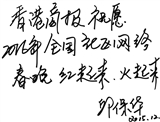 香港商报 祝愿
2016年全国记者网络
春晚 红起来、火起来
邓保华
2015.12.